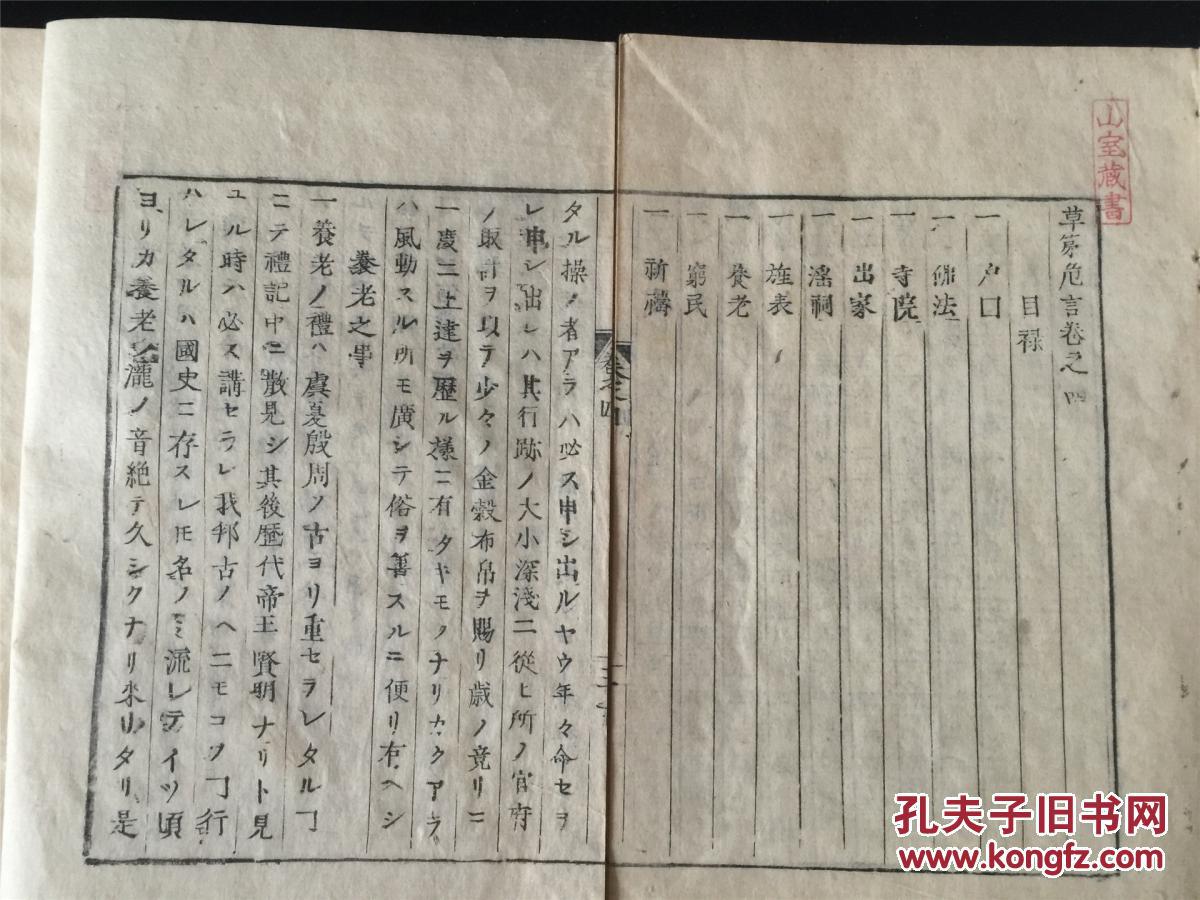 山室蔵書
草茅危言卷之四
目禄
一 戸口
一 佛法
一 寺院
一 出家
一 淫祠
一 旌表
一 養老
一 窮民
一 祈禱
卷之四
タル操ノ者アラハ必ス申シ出ルヤウ年々命セヲ
レ申シ出レハ其行跡ノ大小深淺ニ從ヒ所ノ官府
ノ取計ヲ以テ少々ノ金穀布帛ヲ賜リ歳ノ竟リニ
一度二上達ヲ歴ル様ニ有タキモノナリカクアラ
ハ風動スル所モ廣シテ俗ヲ善スルニ便リ有ヘシ
養老之事
一養老ノ禮ハ虞夏殷周ノ古ヨリ重セラレタルヿ
ニテ禮記中ニ散見シ其後歴代帝王賢明ナリト見
ユル時ハ必ス講セラレ我邦古ノヘニモコノヿ行
ハレタルハ國史ニ存スレ𪜈名ノミ流レテイツ頃
ヨリカ養老ノ瀧ノ音絶テ久シクナリ來リタリ是
孔夫子旧书网
www.kongfz.com